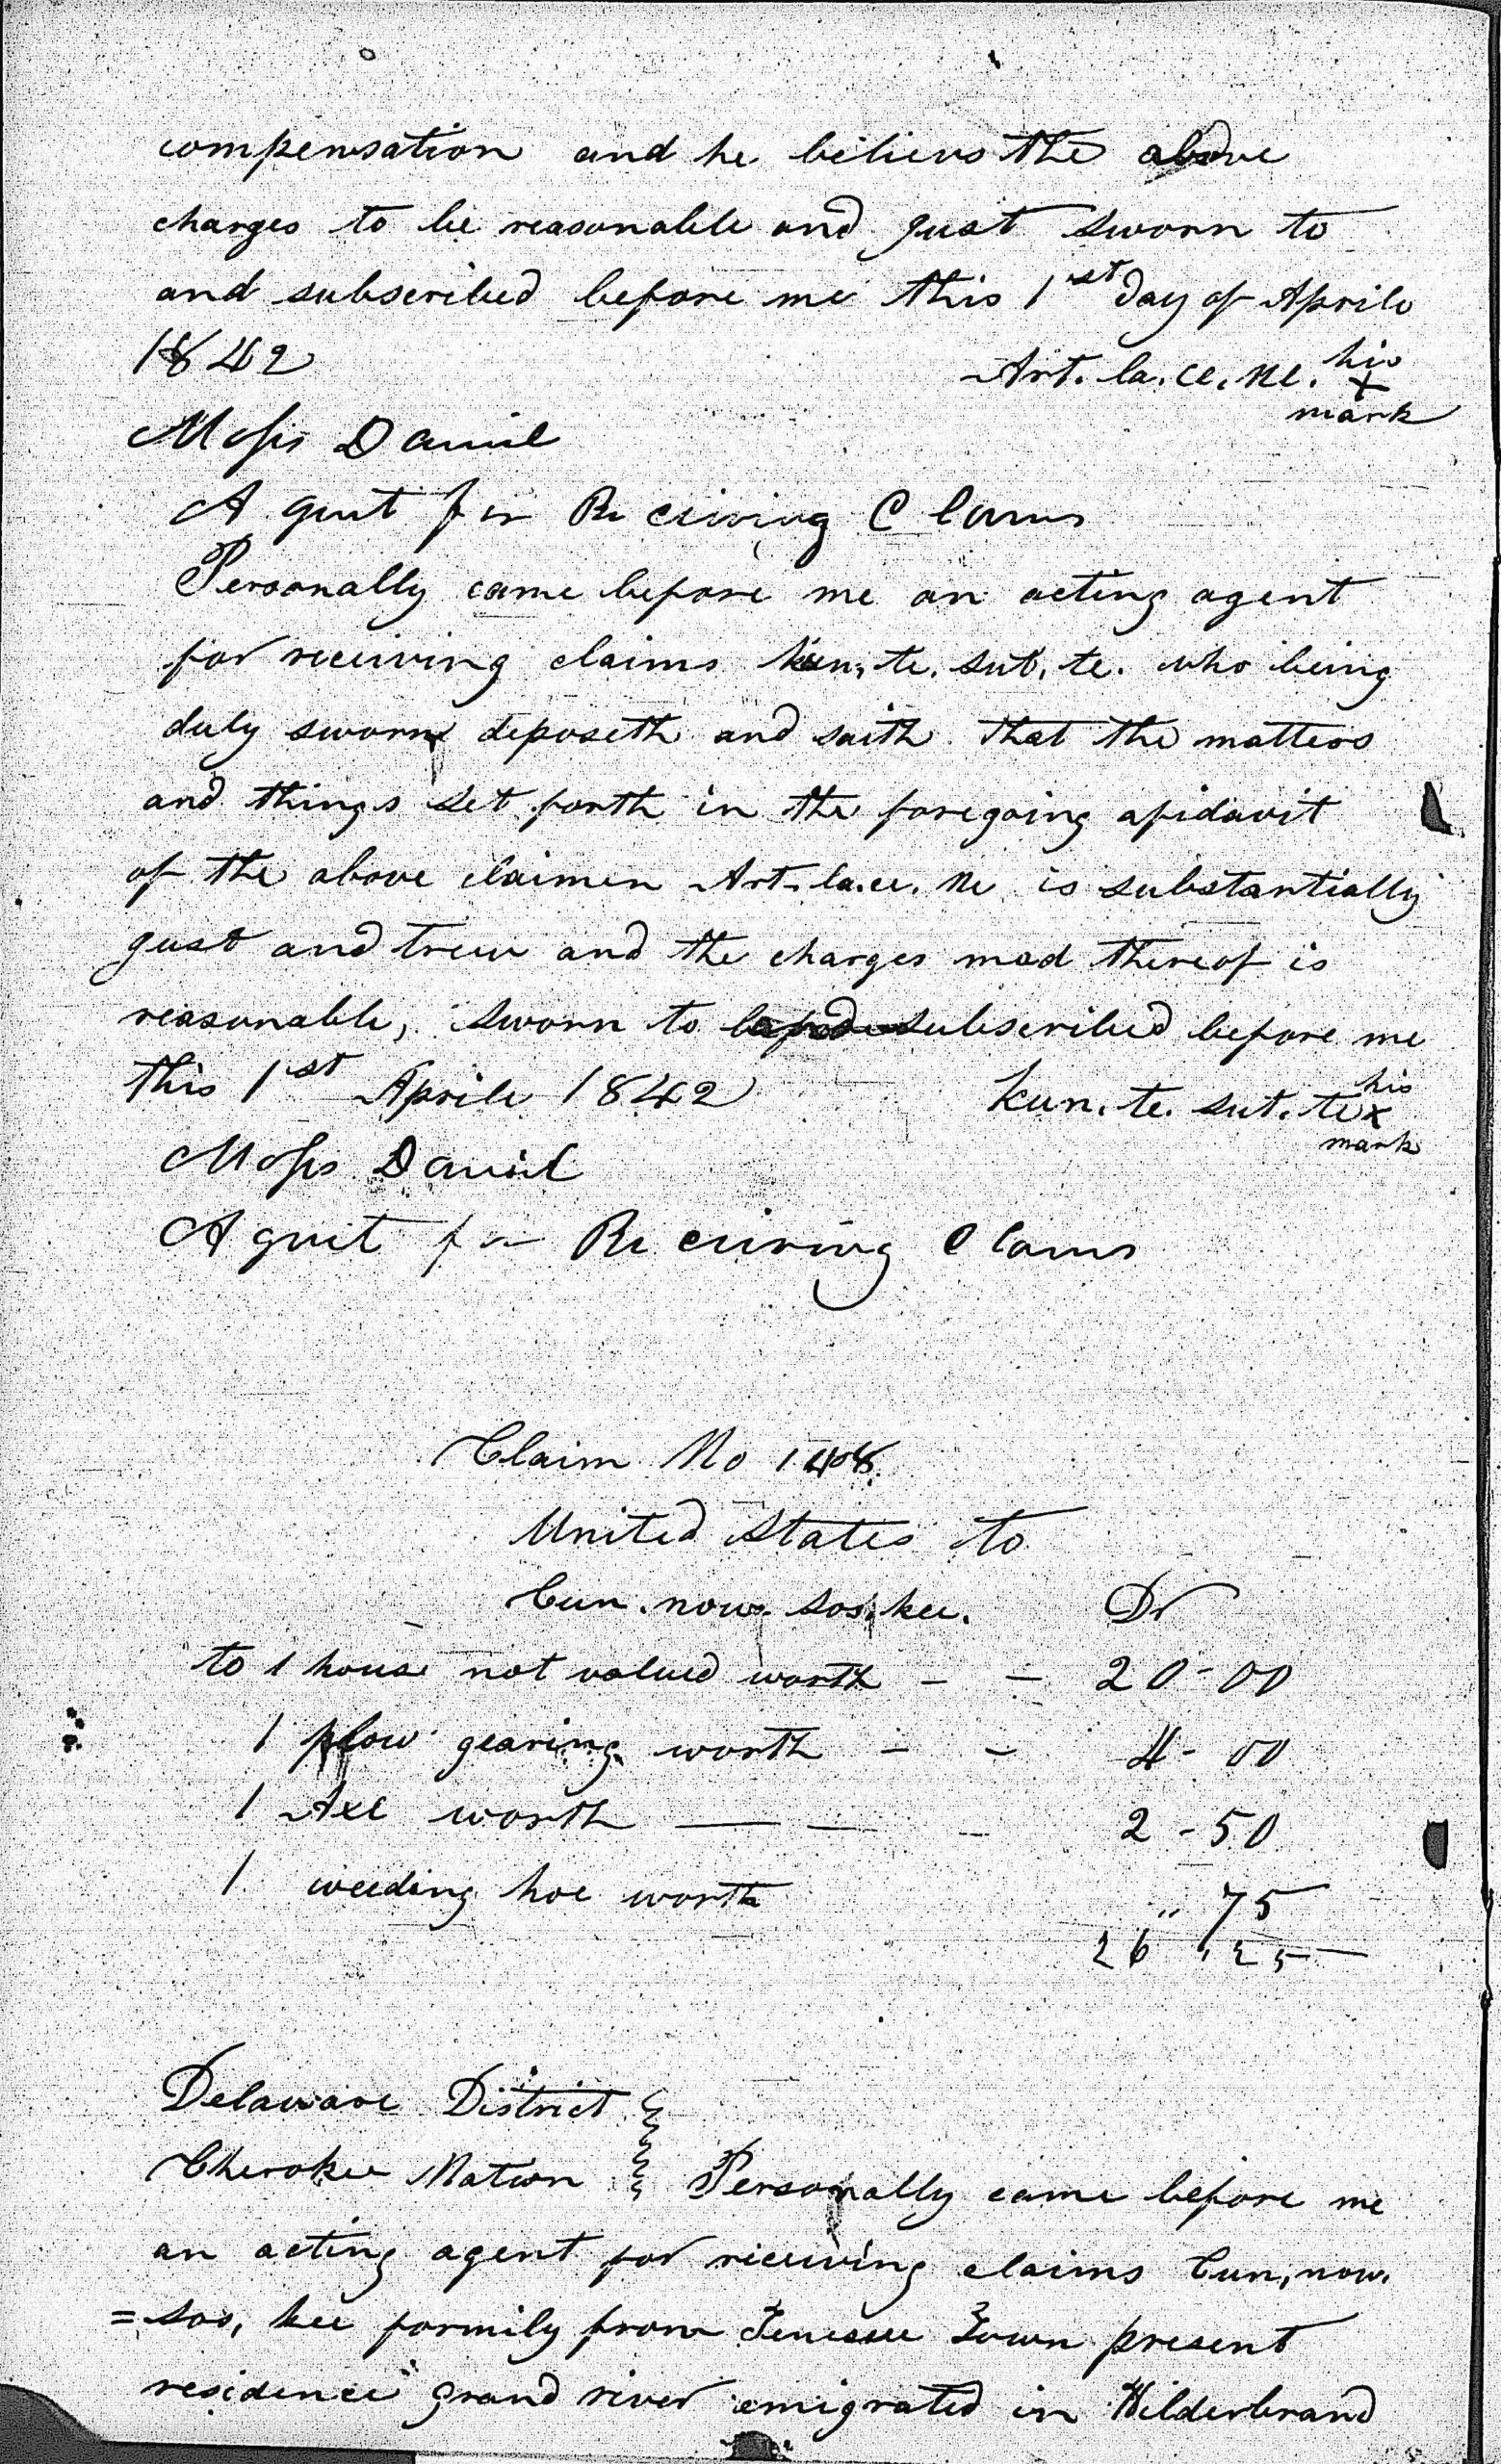 compensation and he believs the above
charges to be reasonable and gust sworn to
and subscribed before me this 1st day of Aprile
1842
Art. la. ce. ne. his x mark
Moses Daniel
Agent for Receiving Claims
Personally came before me an acting agent
for receiving claims kun. te. sut. te. who being
duly sworn deposeth and saith that the matters
and things set forth in the foregoing afidavit
of the above claimen Art. la. ce. ne is substantially
gust and treu and the charges mad thereof is
reasonable, sworn to subscribed before me
this 1st Aprile 1842
kun. te. sut. te his x mark
Moses Daniel
Agent for Receiving Claims
Claim No 148
United States to
Cun. now. sos. kee. Dr
to 1 house not valued worth - - 20-00
1 plow gearing worth - - 4-00
1 Axe worth — — - 2-50
1 weeding hoe worth " 75
26 " 25
Delaware District
Cherokee Nation Personally came before me
an acting agent for receiving claims Cun, now,
= sos, kee formily from Tenessee Town present
residence grand river emigrated in Hilderbrand